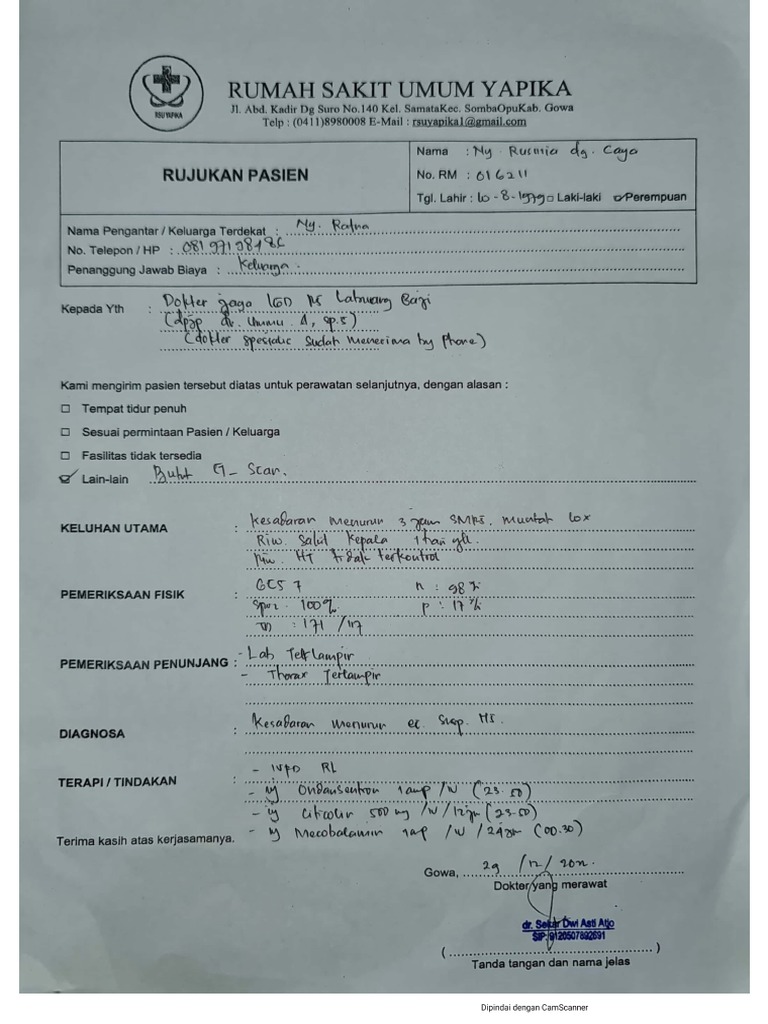 RSU YAPIKA
RUMAH SAKIT UMUM YAPIKA
Jl. Abd. Kadir Dg Suro No.140 Kel. SamataKec. SombaOpuKab. Gowa
Telp : (0411)8980008 E-Mail : rsuyapika1@gmail.com
RUJUKAN PASIEN
Nama : Ny. Rusmia dg. Caya
No. RM : 016211
Tgl. Lahir : 10-8-1979 Laki-laki Perempuan
Nama Pengantar / Keluarga Terdekat : Ny. Ratna
No. Telepon / HP :
Penanggung Jawab Biaya : Keluarga.
Kepada Yth : Dokter jaga IGD RS Labuang Baji
(dpjp dr. Ummu. A, Sp.S)
(dokter spesialis sudah menerima by phone)
Kami mengirim pasien tersebut diatas untuk perawatan selanjutnya, dengan alasan :
Tempat tidur penuh
Sesuai permintaan Pasien / Keluarga
Fasilitas tidak tersedia
Lain-lain Butuh CT-Scan.
KELUHAN UTAMA : Kesadaran menurun 3 jam SMRS, muntah 10x
Riw. Sakit Kepala 1 hari yll.
Riw. HT tidak terkontrol
PEMERIKSAAN FISIK : GCS 7 n : 98 x/i
Spo2 : 100% p : 17 x/i
TD : 171/117
PEMERIKSAAN PENUNJANG : - Lab Terlampir
- Thorax Terlampir
DIAGNOSA : Kesadaran menurun ec. Susp. HS.
TERAPI / TINDAKAN : - IVFD RL
- inj Ondansentron 1 amp /IV (23.50)
- inj Citicolin 500 mg /IV/12jam (23.50)
- inj Mecobalamin 1 amp /IV /24jam (00.30)
Terima kasih atas kerjasamanya.
Gowa, 29 /12/
Dokter yang merawat
dr. Dwi Asti Atjo
SIP.
(..........)
Tanda tangan dan nama jelas
Dipindai dengan CamScanner